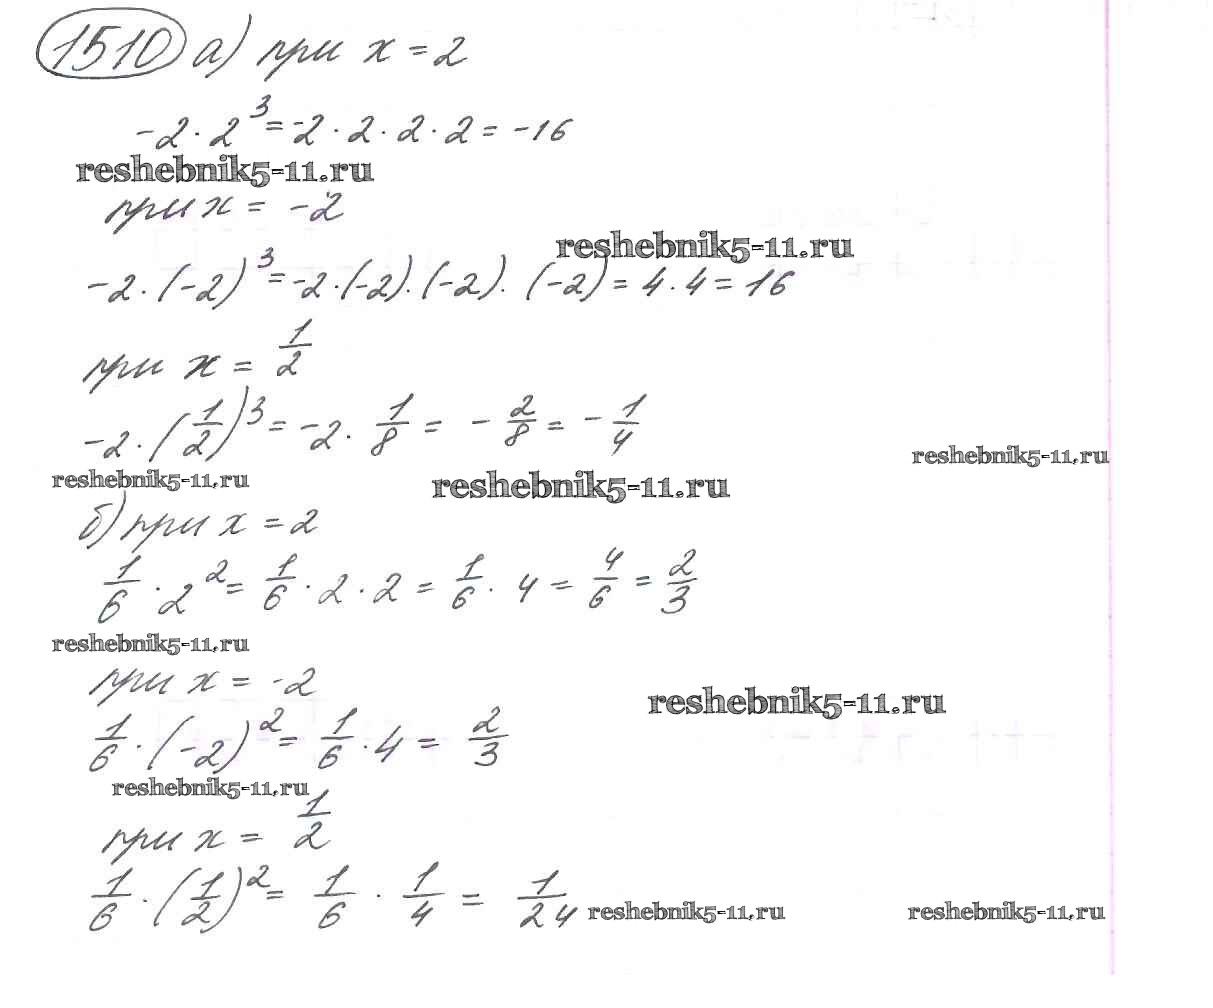 1510 а) при x = 2
-2 · 2³ = -2 · 2 · 2 · 2 = -16
reshebnik5-11.ru
при x = -2
reshebnik5-11.ru
-2 · (-2)³ = -2 · (-2) · (-2) · (-2) = 4 · 4 = 16
при x = 1/2
-2 · (1/2)³ = -2 · 1/8 = - 2/8 = - 1/4
reshebnik5-11.ru
reshebnik5-11.ru reshebnik5-11.ru
б) при x = 2
1/6 · 2² = 1/6 · 2 · 2 = 1/6 · 4 = 4/6 = 2/3
reshebnik5-11.ru
при x = -2
reshebnik5-11.ru
1/6 · (-2)² = 1/6 · 4 = 2/3
reshebnik5-11.ru
при x = 1/2
1/6 · (1/2)² = 1/6 · 1/4 = 1/24
reshebnik5-11.ru reshebnik5-11.ru